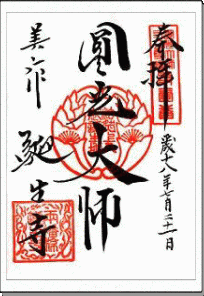 奉拝
平成十八年七月二十一日
圓光大師
美作
誕生寺